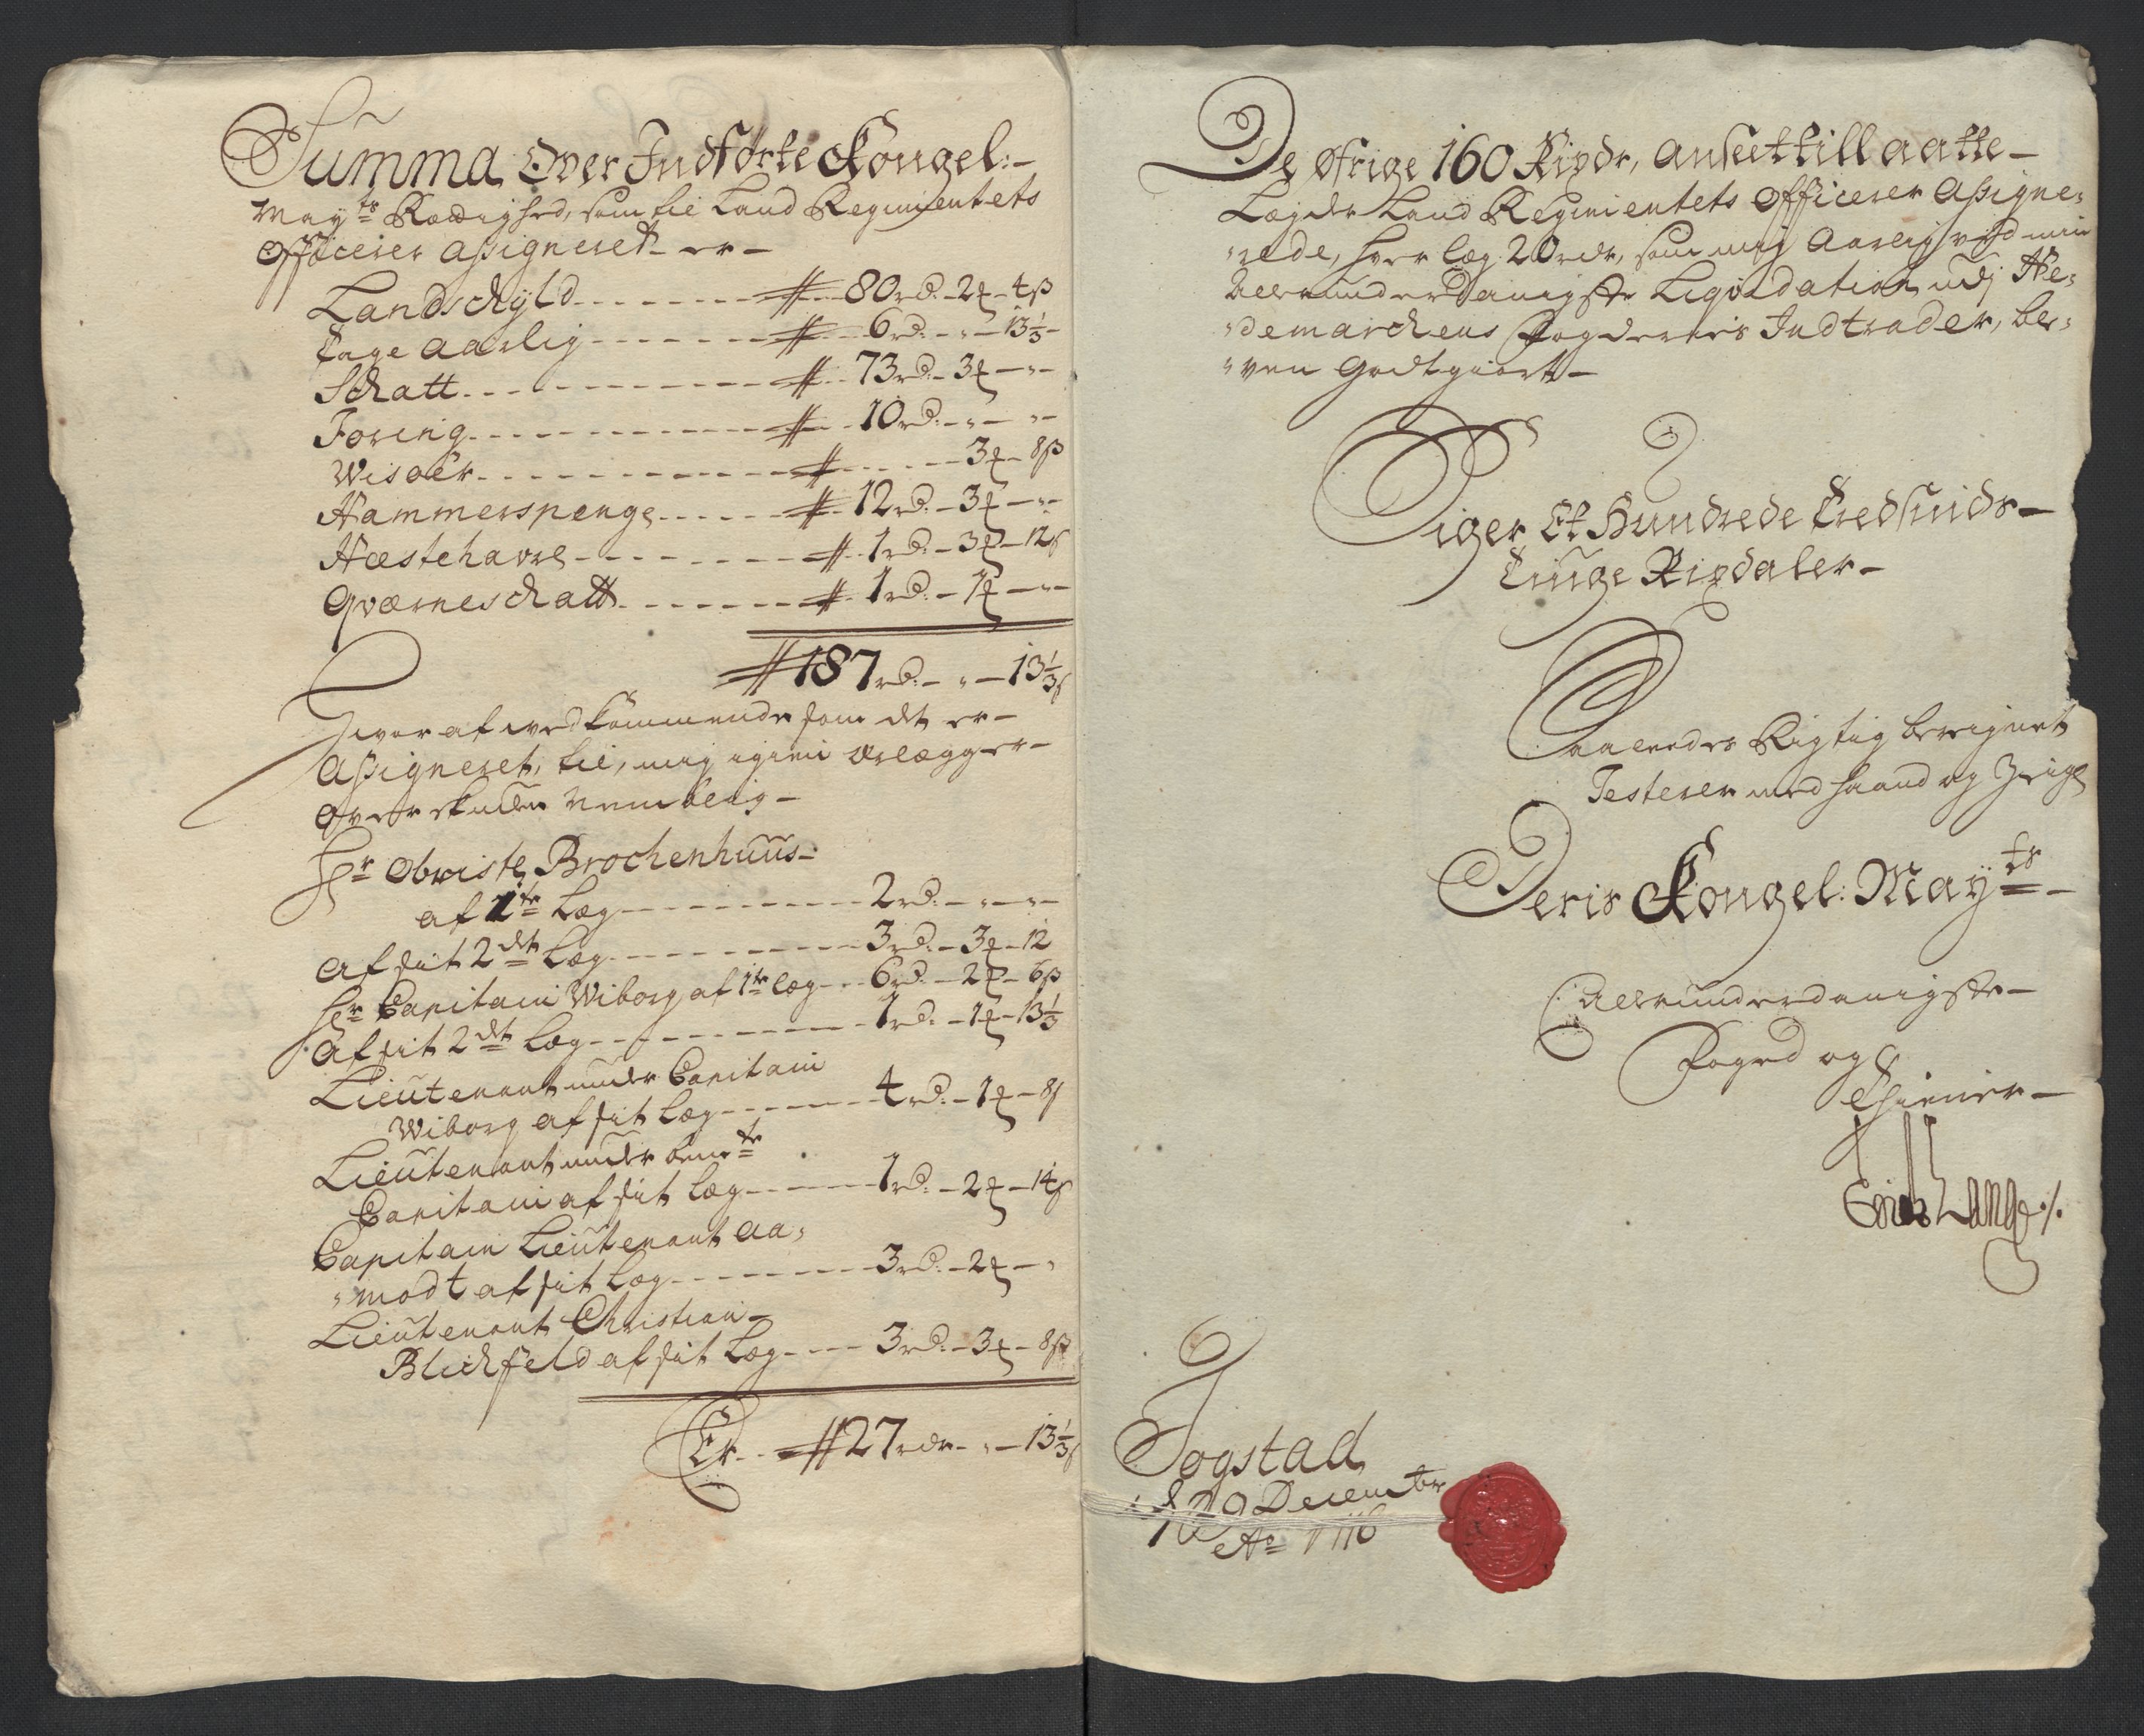 Summa Over Indførte Kongel:
May^ts Rættighed, som til Land Regimentets
Officerer Assigneret er
Landschyld # 80 rd: 2 ℔ 4 ß
Tage Aarlig # 6 rd: " 13 1/3
Schatt # 73 rd: 3 ℔ "
Foring # 10 rd: " "
Wisøer # 3 ℔ 8 ß
Hammerspenge # 12 rd: 3 ℔ "
Hæstehavre # 1 rd: 3 ℔ 12 ß
Qværneschatt # 1 rd: 1 ℔ "
# 187 rd: " 13 1/3 ß
Hvor af vedkommende som det er
Assigneret, til mig igien erlægger
Overskuden Nemblig
Hr Obriste Brochenhuus
af 1te Læg 2 rd: " "
Af sit 2det Læg 3 rd: 3 ℔ 12
Hr Capitain Wiborg af 1te læg 6 rd: 2 ℔ 6 ß
Af sit 2det Læg 1 rd: 1 ℔ 13 1/3
Lieutenant under Capitain
Wiborg af sit Læg 4 rd: 1 ℔ 8 ß
Lieutenant under bem^te
Capitain af sit Læg 1 rd: 2 ℔ 14 ß
Capitain Lieutenant Aa,
"modt af sit Læg 3 rd: 2 ℔ "
Lieutenant Christian
Blichfeld af sit Læg 3 rd: 3 ℔ 8 ß
Er # 27 rdr " 13 1/3 ß
De Øfrige 160 Rixdr, Anseet till aatte
Lægder Land Regimentets Officerer Assigne,
"rede, hver læg 20 rdr, som mig Aarlig ved min
Allerunderdanigste Liqvidation udj He,
"demarchens Fogderies Indtrader, ble,
"ven Godtgiort
Siger Et Hundrede Tredsinds
Tiuge Rixdaler
Saaledes Rigtig beregnet
Testerer med Haand og Zeigl
Deris Kongel: May^ts
Allerunderdanigste
Foged og
Thiener
Lange ./.
Togstad
d 29 Decembr
Ao 1716